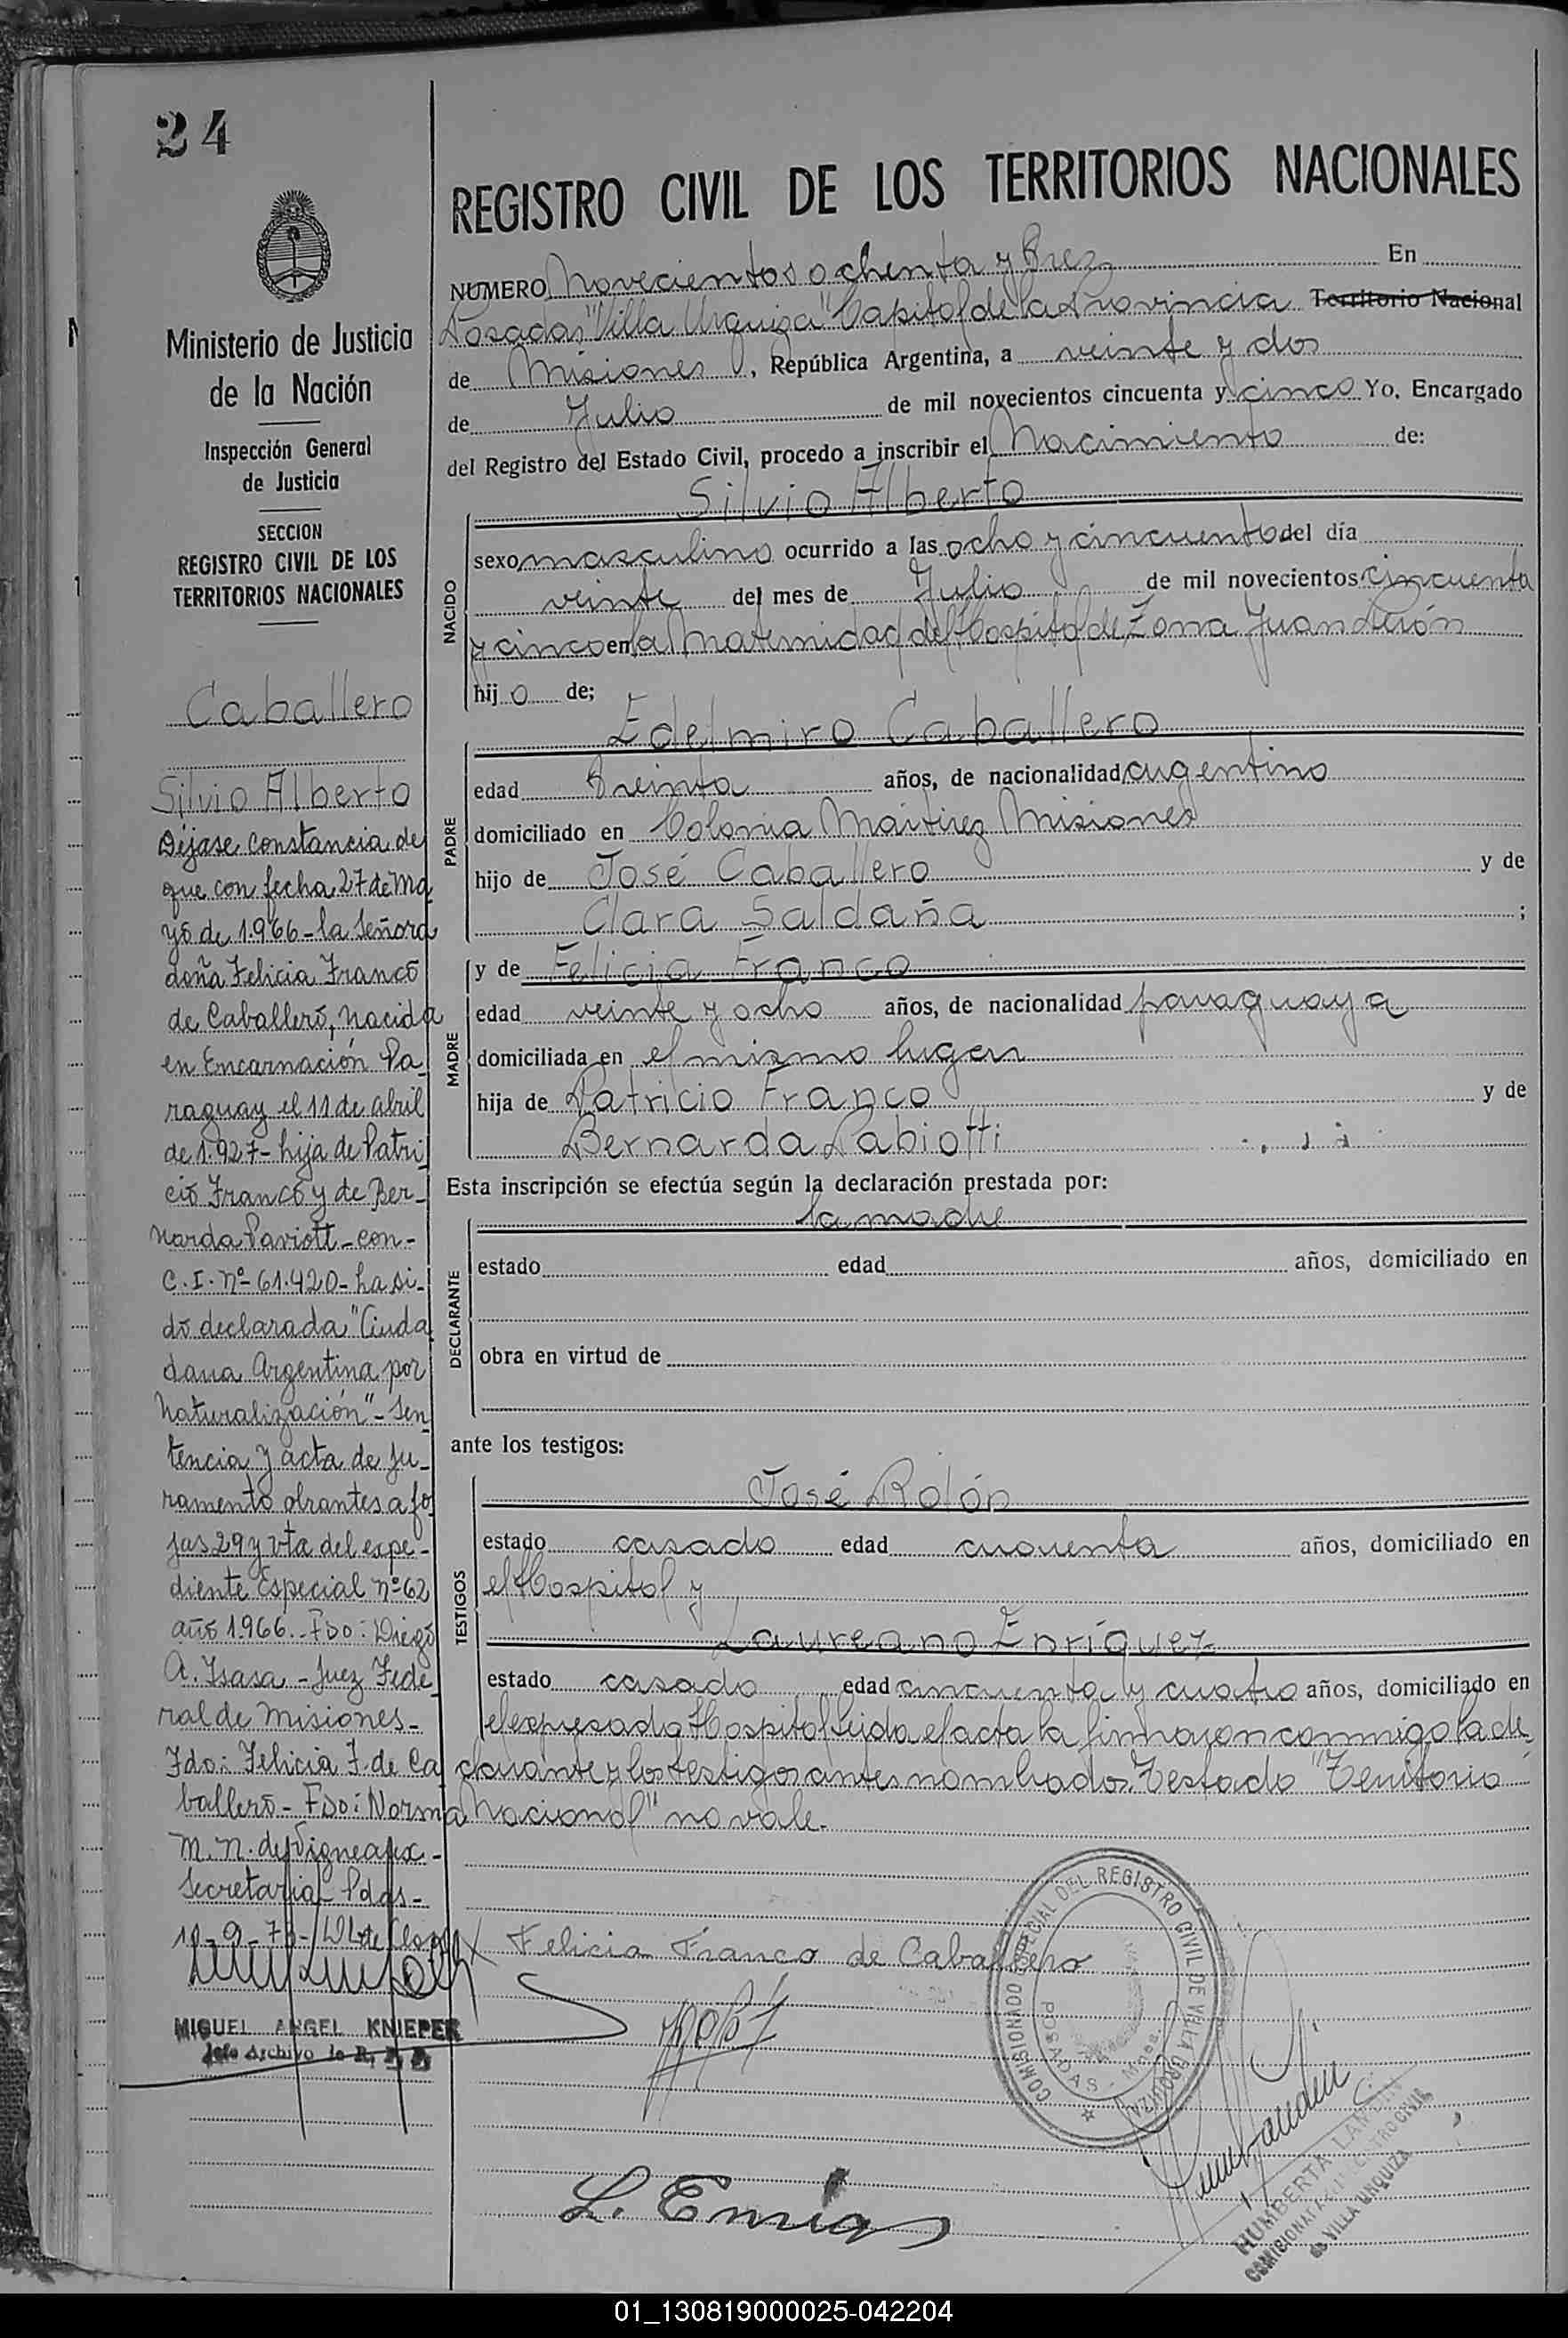 24
Ministerio de Justicia
de la Nación
Inspección General
de Justicia
SECCION
REGISTRO CIVIL DE LOS
TERRITORIOS NACIONALES
Caballero
Silvio Alberto
Déjase constancia de
que con fecha 27 de Ma
yo de 1.966 - la Señora
doña Felicia Franco
de Caballero, nacida
en Encarnación Pa-
raguay el 11 de abril
de 1.927 - hija de Patri
cio Franco y de Ber-
narda Paviott - con -
C. I. Nº 61.420 - ha si-
do declarada "Ciuda
dana Argentina por
Naturalización" - Sen
tencia y acta de Ju-
ramento obrantes a fo
jas 29 y vta del expe-
diente Especial Nº 62
año 1.966. - Fdo: Diego
A. Isasa - Juez Fede
ral de Misiones -
Fdo: Felicia F. de Ca
ballero - Fdo: Norma
M. N. de Vigneaux -
Secretaria - Pdas -
MIGUEL ANGEL KNIEPER
Jefe Archivo
REGISTRO CIVIL DE LOS TERRITORIOS NACIONALES
NUMERO Novecientos ochenta y trez En
Posadas "Villa Urquiza" Capital de la Provincia Territorio Nacional
de Misiones, República Argentina, a veinte y dos
de Julio de mil novecientos cincuenta y cinco Yo, Encargado
del Registro del Estado Civil, procedo a inscribir el Nacimiento de:
NACIDO
Silvio Alberto
sexo masculino ocurrido a las ocho y cincuenta del día
veinte del mes de Julio de mil novecientos cincuenta
y cinco en la Maternidad del Hospital de Zona Juan Perón
hijo de;
PADRE
Edelmiro Caballero
edad treinta años, de nacionalidad argentino
domiciliado en Colonia Martirez Misiones
hijo de José Caballero y de
Clara Saldaña ;
MADRE
y de Felicia Franco
edad veinte y ocho años, de nacionalidad paraguaya
domiciliada en el mismo lugar
hija de Patricio Franco y de
Bernarda Pabiotti
Esta inscripción se efectúa según la declaración prestada por:
DECLARANTE
la madre
estado edad años, domiciliado en
obra en virtud de
ante los testigos:
TESTIGOS
José Rolón
estado casado edad cuarenta años, domiciliado en
el Hospital y
Laureano Enríquez
estado casado edad cincuenta y cuatro años, domiciliado en
el expresado Hospital leida el acta la firmaron conmigo la de
clarante y los testigos antes nombrados. Testado "Territorio
Nacional" no vale.
Felicia Franco de Caballero
COMISIONADO ESPECIAL DEL REGISTRO CIVIL DE VILLA URQUIZA
POSADAS - Mnes.
HUMBERTA LANDINI
COMISIONADA REGISTRO CIVIL
de VILLA URQUIZA
01_130819000025-042204